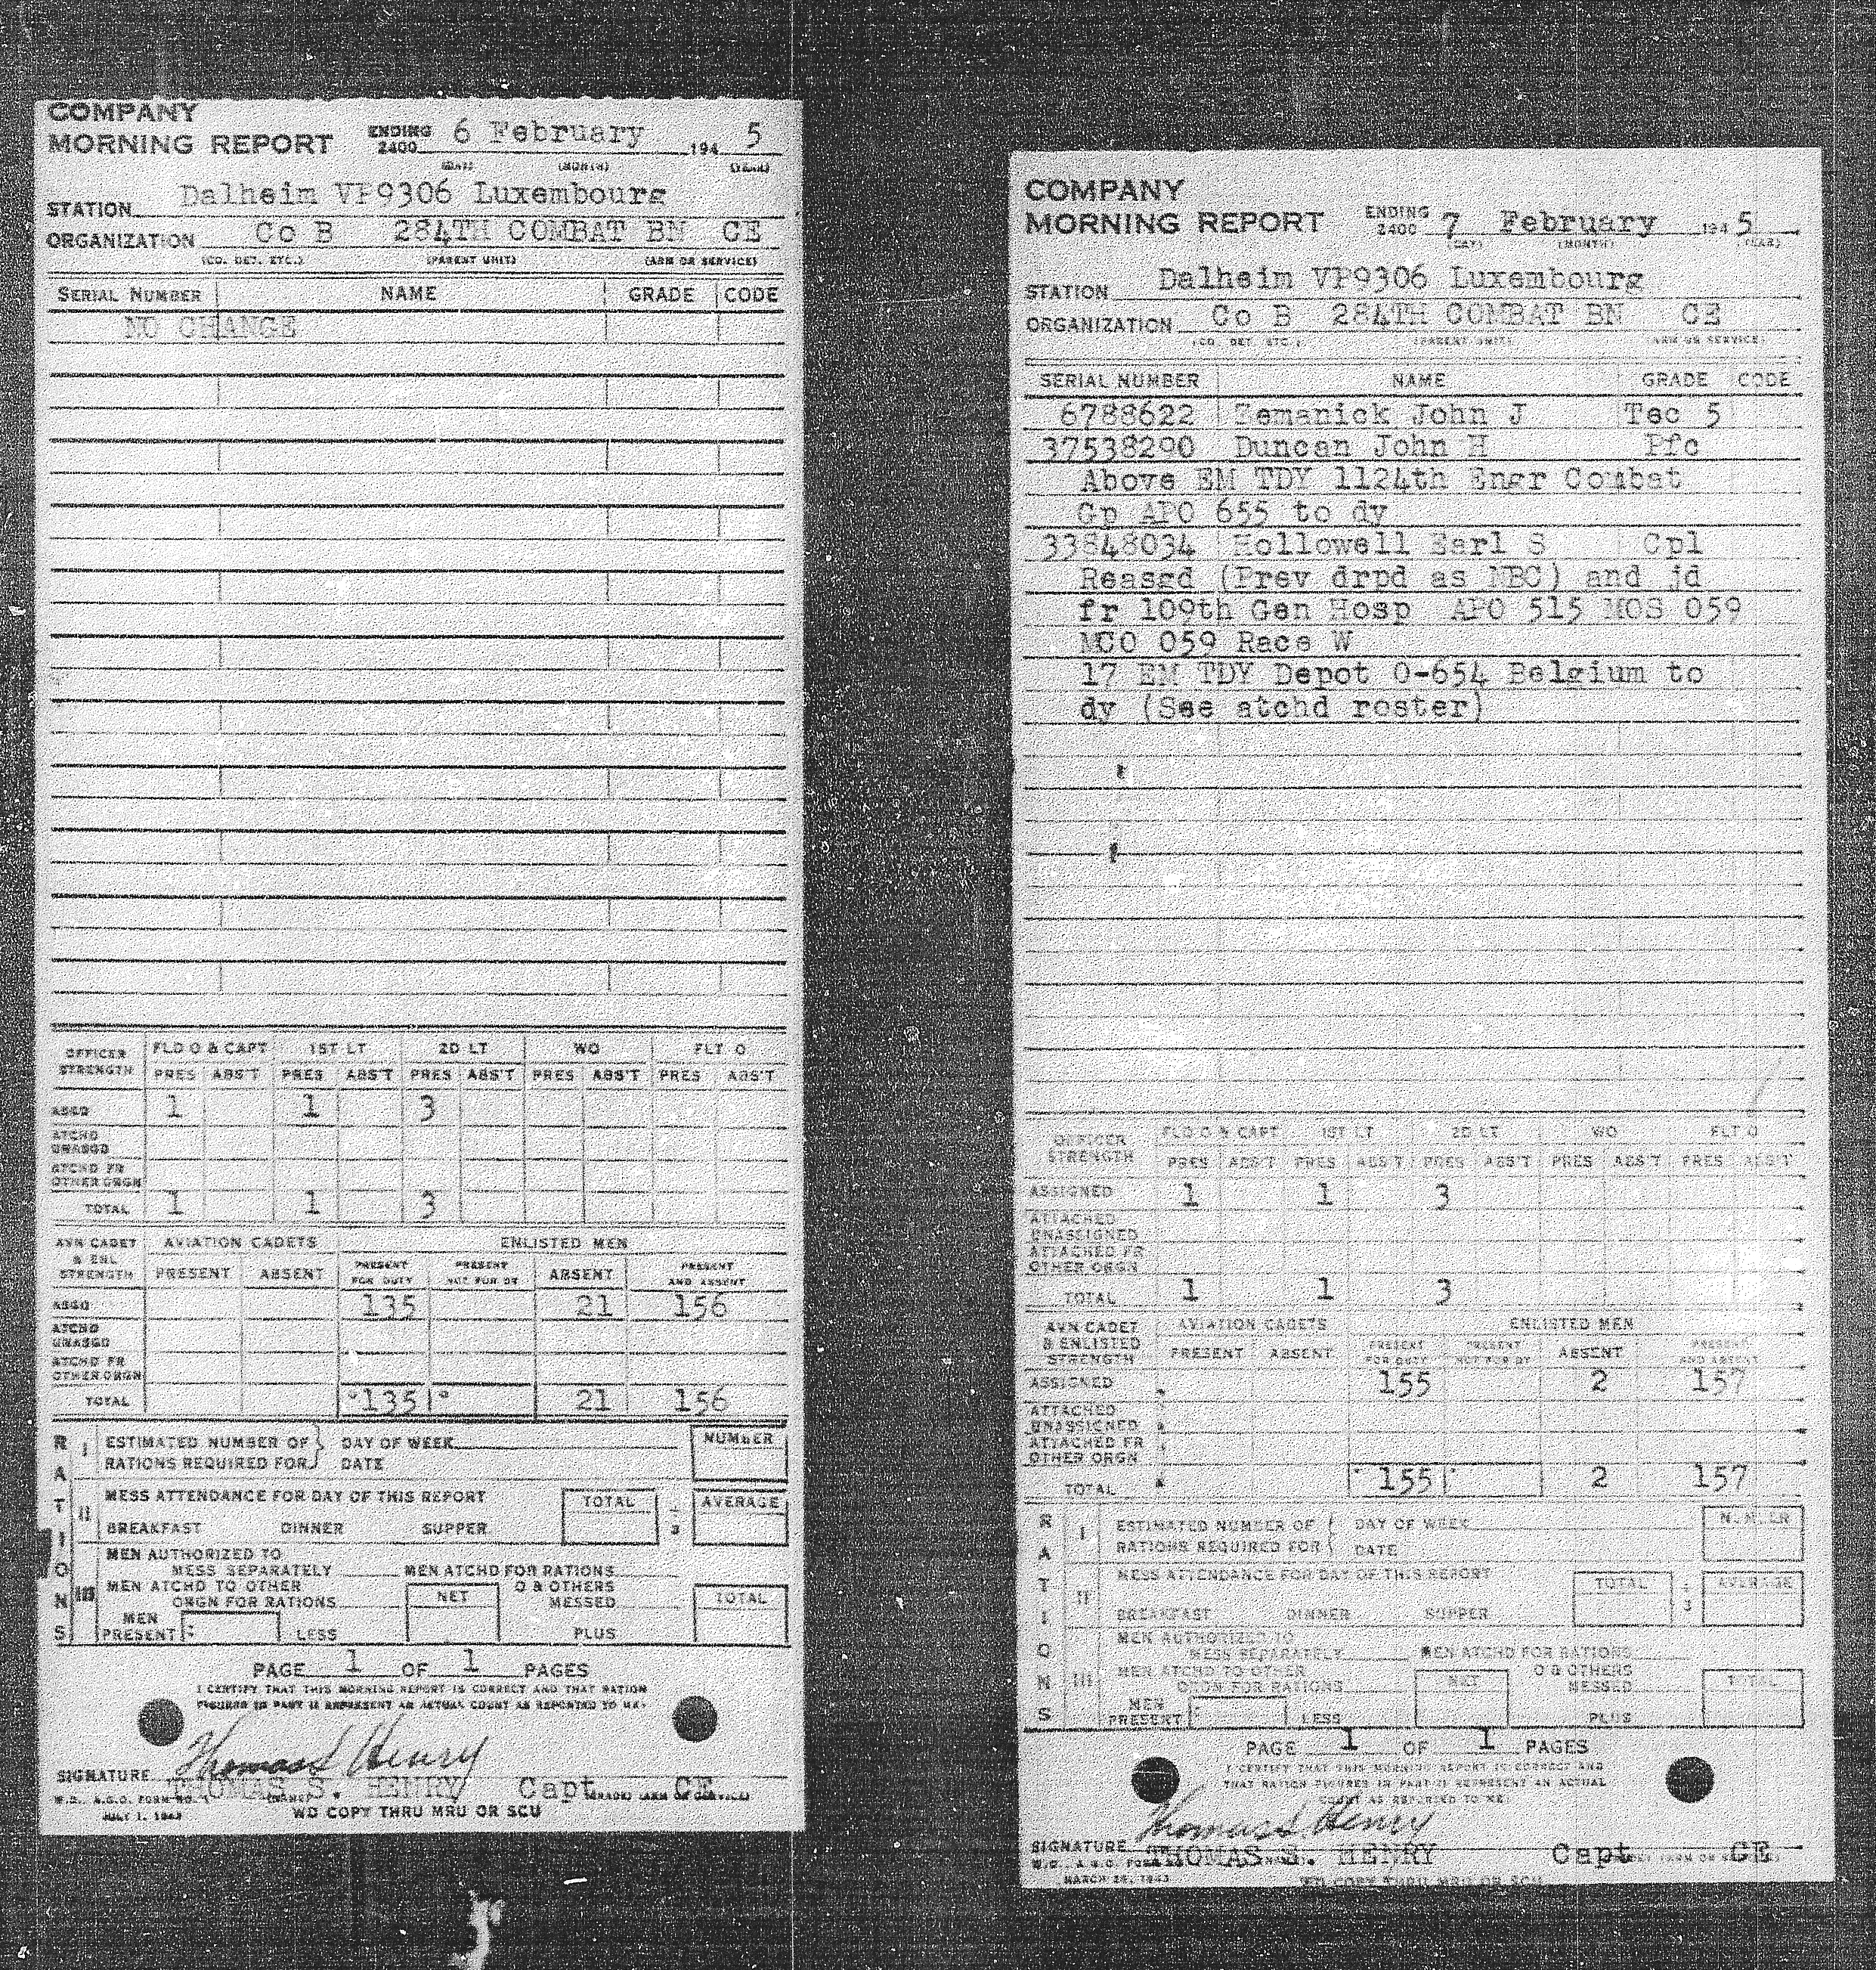 COMPANY
MORNING REPORT ENDING 2400 6 February 194 5
(DAY) (MONTH) (YEAR)
STATION Dalheim VP9306 Luxembourg
ORGANIZATION Co B 284TH COMBAT BN CE
(CO. DET. ETC.) (PARENT UNIT) (ARM OR SERVICE)
SERIAL NUMBER NAME GRADE CODE
NO CHANGE
OFFICER STRENGTH FLD O & CAPT 1ST LT 2D LT WO FLT O
PRES ABS'T PRES ABS'T PRES ABS'T PRES ABS'T PRES ABS'T
ASGD 1 1 3
ATCHD UNASGD
ATCHD FR OTHER ORGN
TOTAL 1 1 3
AVN CADET & ENL STRENGTH AVIATION CADETS ENLISTED MEN
PRESENT ABSENT PRESENT FOR DUTY PRESENT NOT FOR DY ABSENT PRESENT AND ABSENT
ASGD 135 21 156
ATCHD UNASGD
ATCHD FR OTHER ORGN
TOTAL 135 21 156
RATIONS
I ESTIMATED NUMBER OF RATIONS REQUIRED FOR DAY OF WEEK DATE NUMBER
II MESS ATTENDANCE FOR DAY OF THIS REPORT TOTAL ÷ 3 AVERAGE
BREAKFAST DINNER SUPPER
III MEN AUTHORIZED TO MESS SEPARATELY MEN ATCHD FOR RATIONS
MEN ATCHD TO OTHER ORGN FOR RATIONS NET O & OTHERS MESSED TOTAL
MEN PRESENT: LESS PLUS
PAGE 1 OF 1 PAGES
I CERTIFY THAT THIS MORNING REPORT IS CORRECT AND THAT RATION
FIGURES IN PART II REPRESENT AN ACTUAL COUNT AS REPORTED TO ME:
Thomas S Henry
SIGNATURE THOMAS S. HENRY Capt CE
W.D., A.G.O. FORM NO. (NAME) (GRADE) (ARM OR SERVICE)
JULY 1, 1943 WD COPY THRU MRU OR SCU
COMPANY
MORNING REPORT ENDING 2400 7 February 194 5
(DAY) (MONTH) (YEAR)
STATION Dalheim VP9306 Luxembourg
ORGANIZATION Co B 284TH COMBAT BN CE
(CO. DET. ETC.) (PARENT UNIT) (ARM OR SERVICE)
SERIAL NUMBER NAME GRADE CODE
6788622 Zemanick John J Tec 5
37538290 Duncan John H Pfc
Above EM TDY 1124th Engr Combat
Gp APO 655 to dy
33848034 Hollowell Earl S Cpl
Reasgd (Prev drpd as NBC) and jd
fr 109th Gen Hosp APO 515 MOS 059
MCO 059 Race W
17 EM TDY Depot O-654 Belgium to
dy (See atchd roster)
OFFICER STRENGTH FLD O & CAPT 1ST LT 2D LT WO FLT O
PRES ABS'T PRES ABS'T PRES ABS'T PRES ABS'T PRES ABS'T
ASSIGNED 1 1 3
ATTACHED UNASSIGNED
ATTACHED FR OTHER ORGN
TOTAL 1 1 3
AVN CADET & ENLISTED STRENGTH AVIATION CADETS ENLISTED MEN
PRESENT ABSENT PRESENT FOR DUTY PRESENT NOT FOR DY ABSENT PRESENT AND ABSENT
ASSIGNED 155 2 157
ATTACHED UNASSIGNED
ATTACHED FR OTHER ORGN
TOTAL 155 2 157
RATIONS
I ESTIMATED NUMBER OF RATIONS REQUIRED FOR DAY OF WEEK DATE NUMBER
II MESS ATTENDANCE FOR DAY OF THIS REPORT TOTAL ÷ 3 AVERAGE
BREAKFAST DINNER SUPPER
III MEN AUTHORIZED TO MESS SEPARATELY MEN ATCHD FOR RATIONS
MEN ATCHD TO OTHER ORGN FOR RATIONS NET O & OTHERS MESSED TOTAL
MEN PRESENT: LESS PLUS
PAGE 1 OF 1 PAGES
I CERTIFY THAT THIS MORNING REPORT IS CORRECT AND
THAT RATION FIGURES IN PART II REPRESENT AN ACTUAL
COUNT AS REPORTED TO ME:
Thomas S Henry
SIGNATURE THOMAS S. HENRY Capt CE
W.D., A.G.O. FORM
MARCH 24, 1943 WD COPY THRU MRU OR SCU